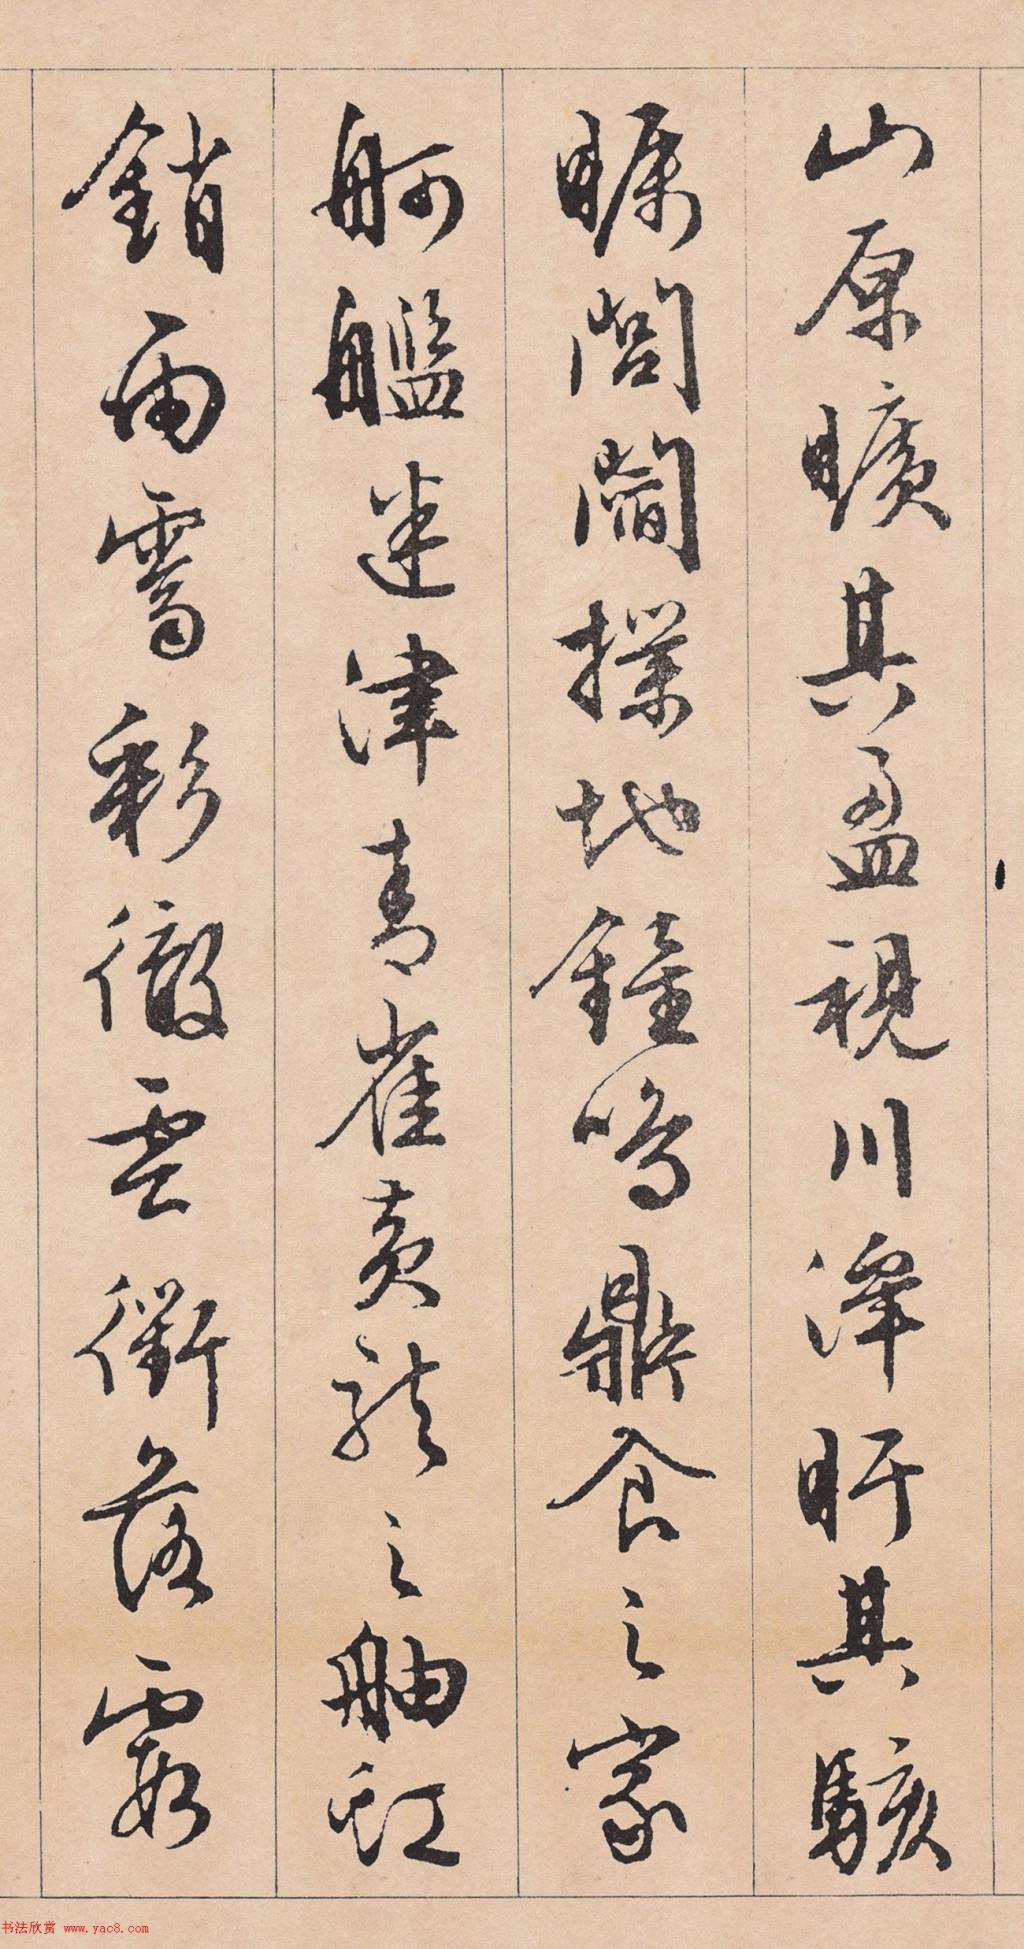 山原曠其盈視川澤盱其駭
矚閭閻撲地鐘鳴鼎食之家
舸艦迷津青雀黃龍之舳虹
銷雨霽彩徹雲衢落霞
书法欣赏 www.yac8.com